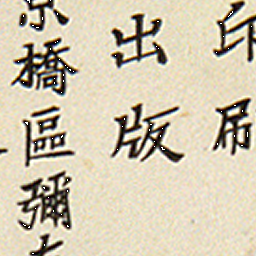 印刷
出版
京橋區彌左